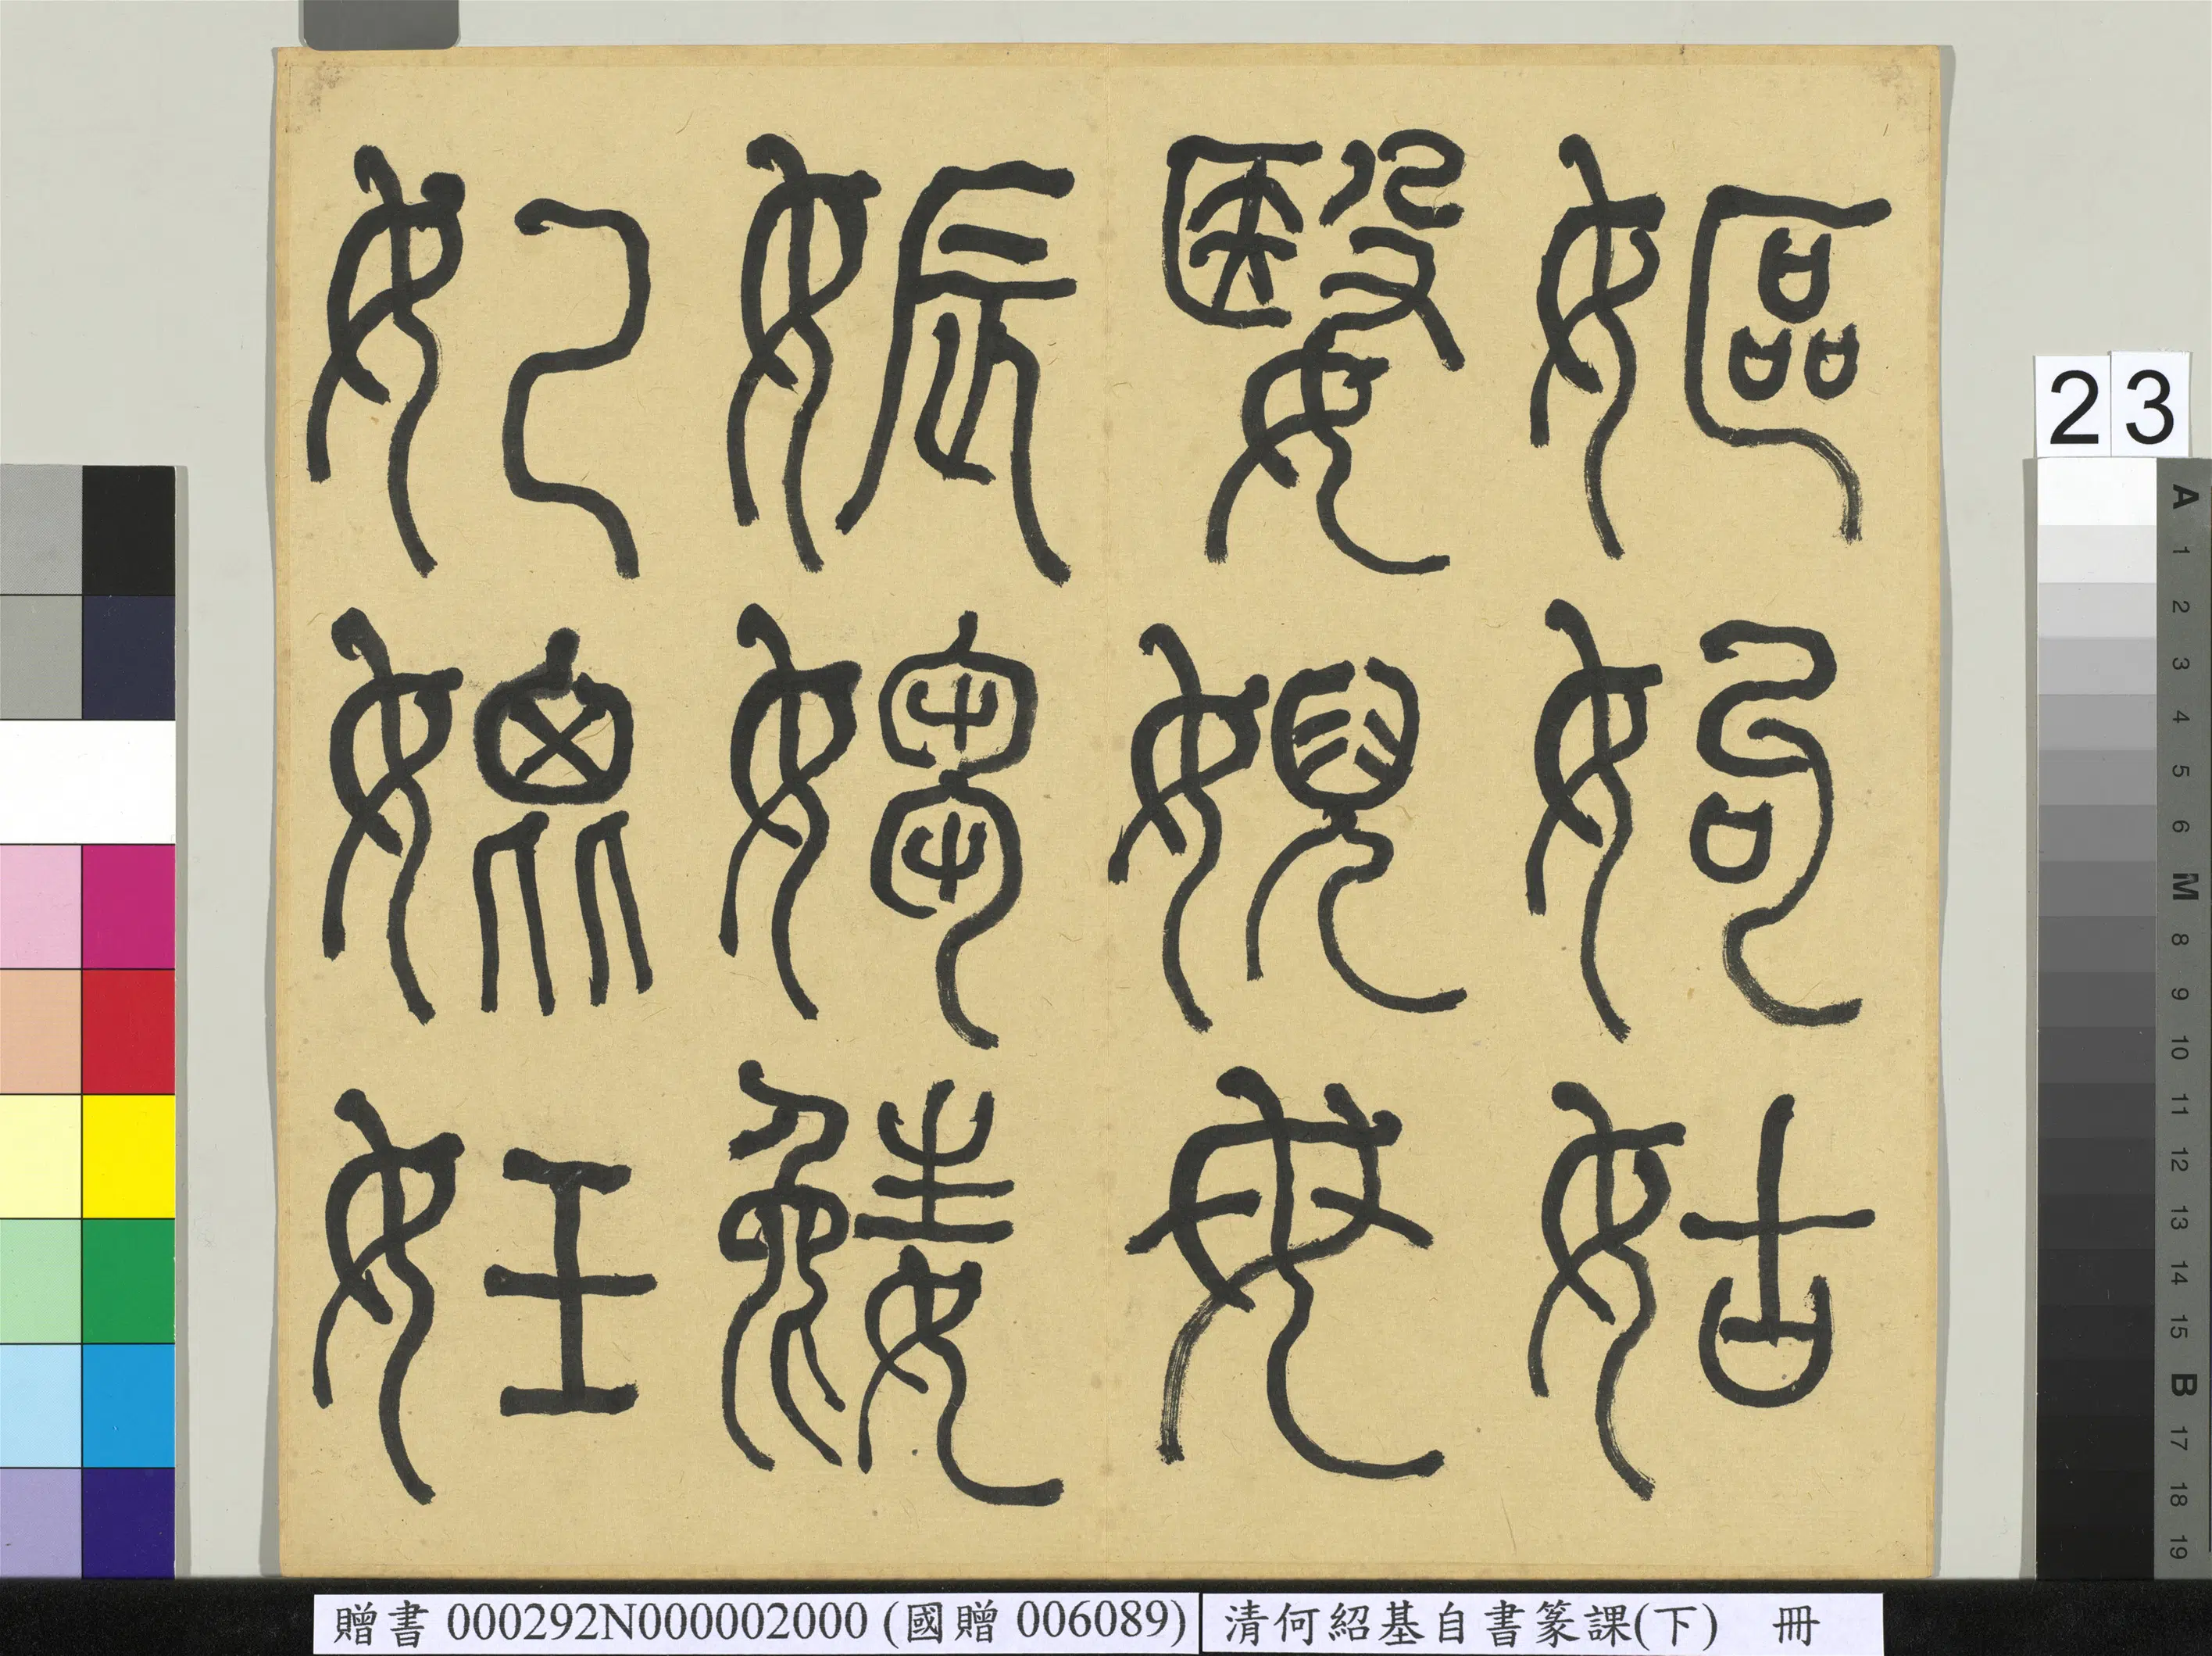 嫗姁姑
嫛婗母
娠媰嬎
妃媲妊
23
A 1 2 3 4 5 6 M 8 9 10 11 12 13 14 15 B 17 18 19
贈書 000292N000002000 (國贈 006089)
清何紹基自書篆課(下) 冊